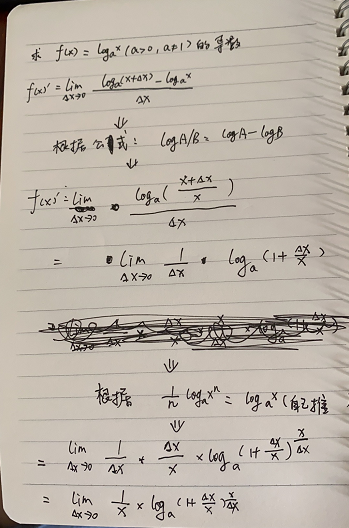 求 f(x) = logₐx (a>0, a≠1) 的导数
f(x)' = lim Δx→0 (logₐ(x+Δx) - logₐx) / Δx
⇓
根据公式: log A/B = log A - log B
⇓
f(x)' = lim Δx→0 logₐ((x+Δx)/x) / Δx
= lim Δx→0 1/Δx · logₐ(1+Δx/x)
⇓
根据 1/n logₐxⁿ = logₐx (自己推
⇓
= lim Δx→0 1/Δx * Δx/x × logₐ(1+Δx/x)^(x/Δx)
= lim Δx→0 1/x × logₐ(1+Δx/x)^(x/Δx)